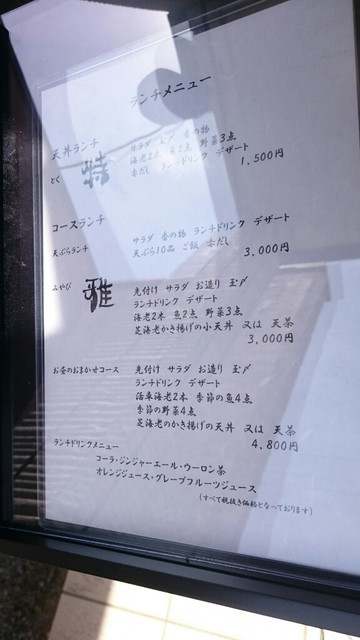 ランチメニュー
天丼ランチ
とく 特
サラダ 玉〆 香の物
海老2本 魚2点 野菜3点
赤だし ランチドリンク デザート
1,500円
コースランチ
天ぷらランチ
サラダ 香の物 ランチドリンク デザート
天ぷら10品 ご飯 赤だし
3,000円
みやび 雅
先付け サラダ お造り 玉〆
ランチドリンク デザート
海老2本 魚2点 野菜3点
芝海老かき揚げの小天丼 又は 天茶
3,000円
お昼のおまかせコース
先付け サラダ お造り 玉〆
ランチドリンク デザート
活車海老2本 季節の魚4点
季節の野菜4点
芝海老のかき揚げの天丼 又は 天茶
4,800円
ランチドリンクメニュー
コーラ・ジンジャーエール・ウーロン茶
オレンジジュース・グレープフルーツジュース
(すべて税抜き価格となっております)